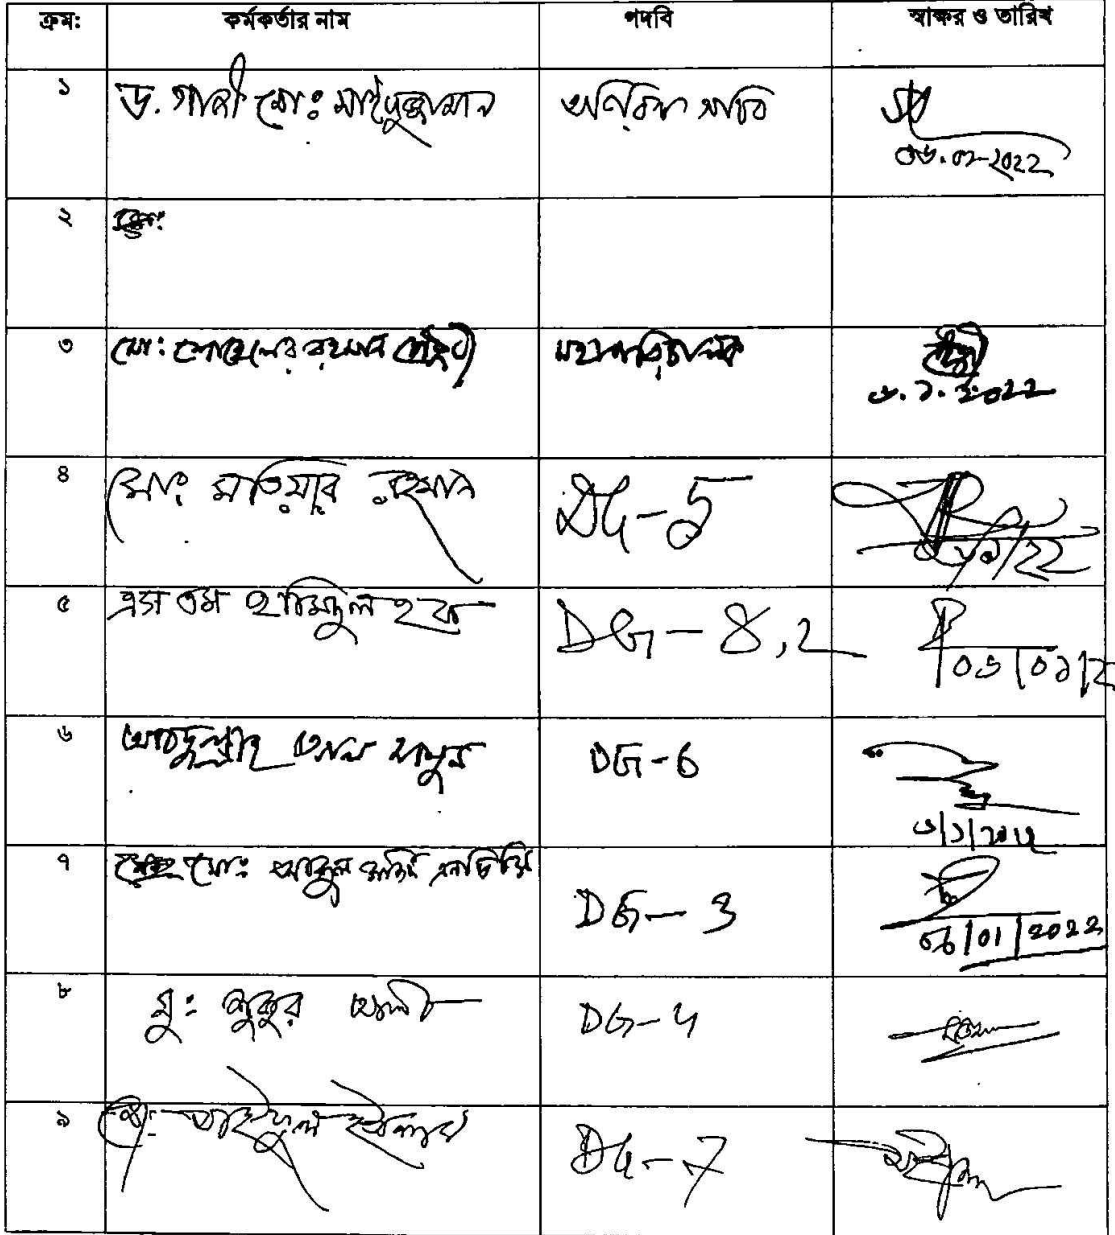 ক্রম: কর্মকর্তার নাম পদবি স্বাক্ষর ও তারিখ
১ ড. গাজী মোঃ সাইফুজ্জামান অতিরিক্ত সচিব
০৬.০১-২০২২
২
৩ মো: সোহেলের রহমান চৌধুরী মহাপরিচালক
৬.১.২০২২
৪ মোঃ মতিয়ার রহমান DG-5
৫ এস এম হামিদুল হক DG-8,2
০৬|০১|২
৬ আবদুল্লাহ আল মামুন DG-6
৬|১|২০২২
৭ মো: আবুল DG-3
06|01|2022
৮ মু: শুকুর আলী DG-4
৯ মো: তাইফুল ইসলাম DG-7